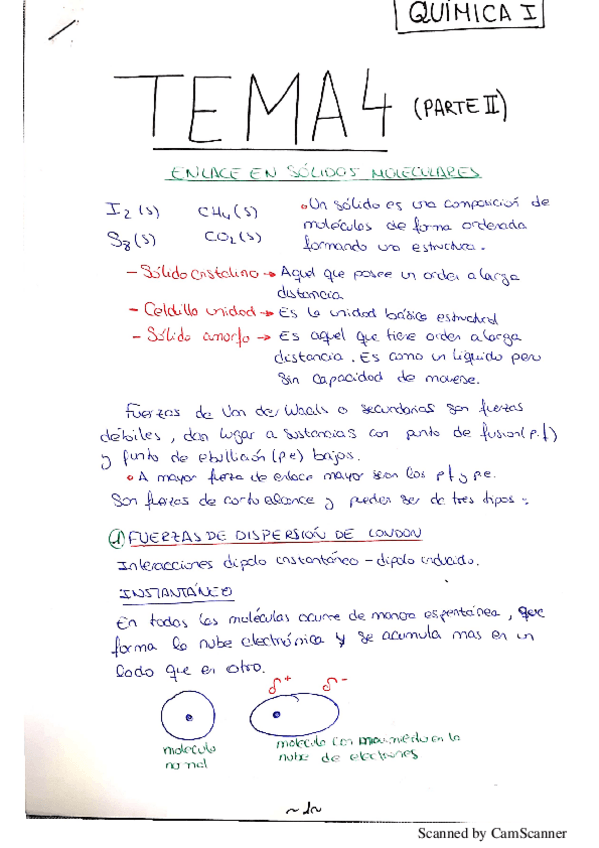 QUÍMICA I
TEMA 4 (PARTE II)
ENLACE EN SÓLIDOS MOLECULARES
I2 (s) CH4 (s)
S8 (s) CO2 (s)
• Un sólido es una composición de
moléculas de forma ordenada
formando una estructura.
- Sólido cristalino → Aquel que posee un orden a larga
distancia
- Celdilla unidad → Es la unidad básica estructural
- Sólido amorfo → Es aquel que tiene orden a larga
distancia. Es como un líquido pero
sin capacidad de moverse.
Fuerzas de Van der Waals o secundarias son fuerzas
débiles, dan lugar a sustancias con punto de fusión (p.f)
y punto de ebullición (pe) bajos.
• A mayor fuerza de enlace mayor son los pf y pe.
Son fuerzas de corto alcance y pueden ser de tres tipos:
1) FUERZAS DE DISPERSIÓN DE LONDON
Interacciones dipolo instantáneo - dipolo inducido.
INSTANTÁNEO
En todas las moléculas ocurre de manera espontánea, que
forma la nube electrónica y se acumula mas en un
lado que en otro.
δ+ δ-
molecula
normal
molecula con movimiento en la
nube de electrones
~1~
Scanned by CamScanner